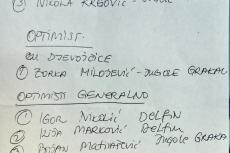 ③ NIKOLA KRGOVIĆ -
OPTIMIST
ZA DJEVOJČICE
① ZORKA MILOŠEVIĆ - JUGOLE GRAKAL
OPTIMISTI GENERALNO
① IGOR NIKOLIĆ DELFIN
② MARKOVIĆ Delfin
③ Jugole GRAKA